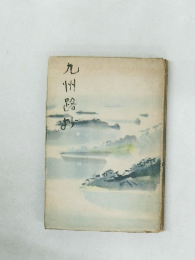 九州路抄